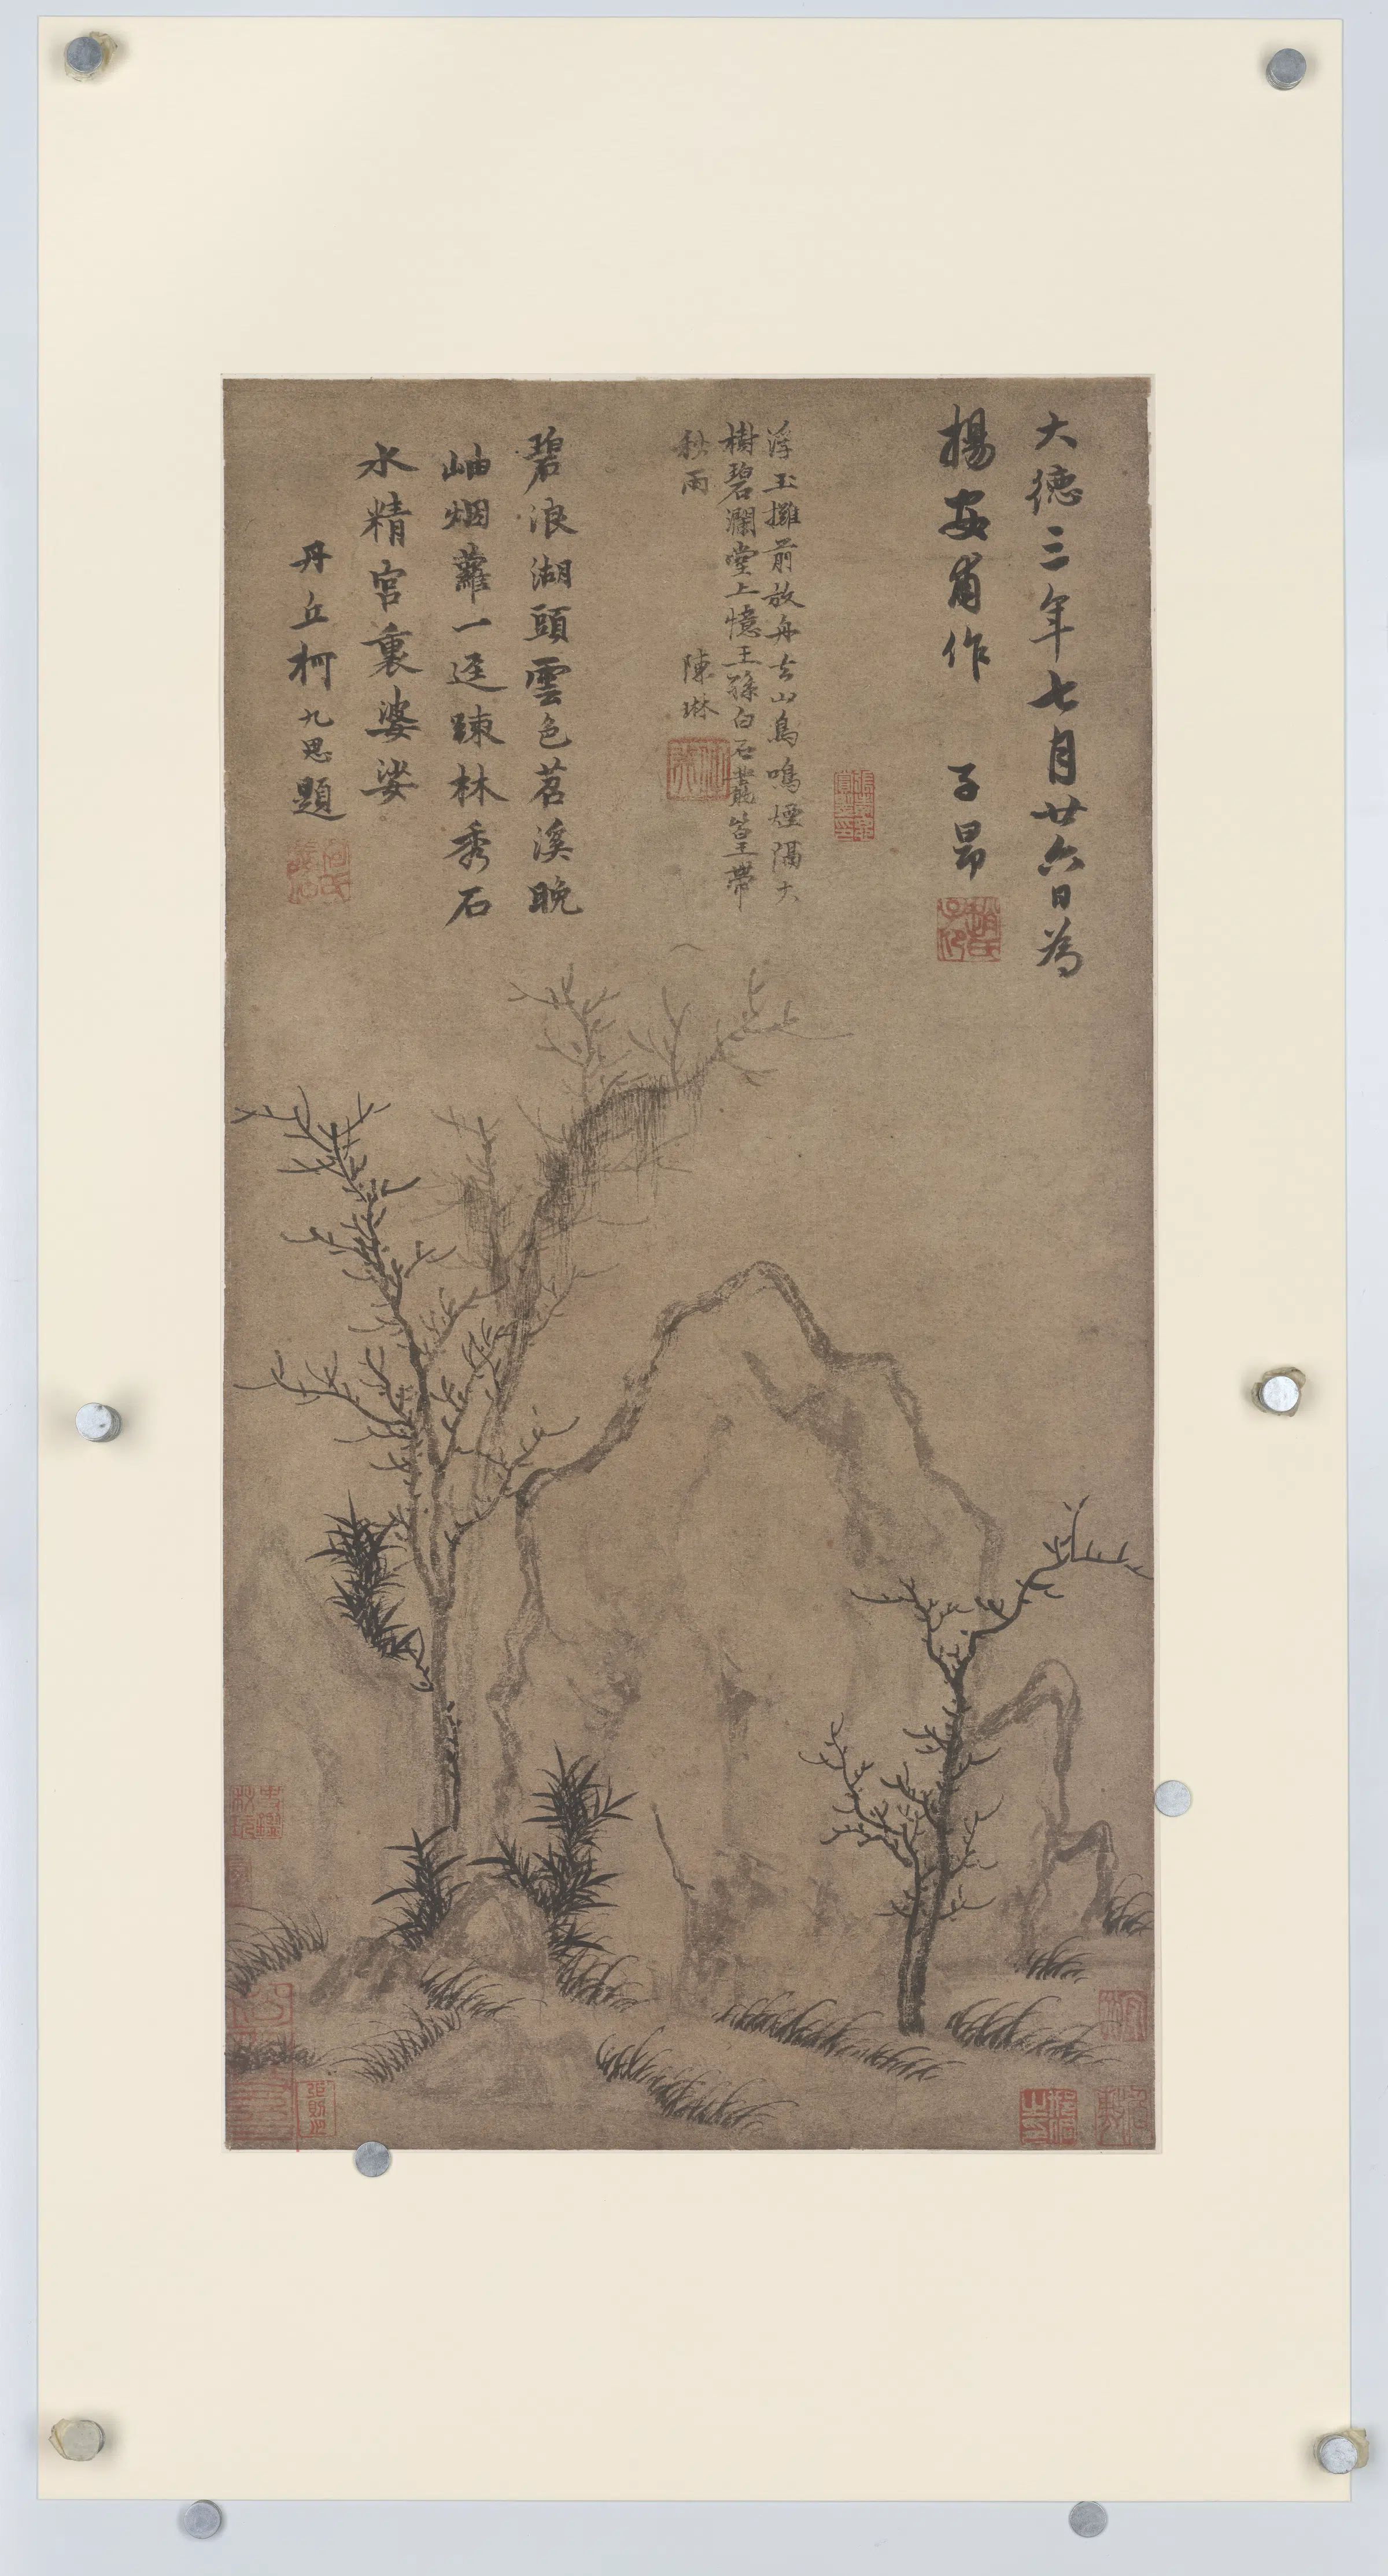 大德三年七月廿六日為
楊安甫作　子昂
浮玉攤前放舟去山鳥鳴煙隔大
樹碧瀾堂上憶王孫白石叢篁帶
秋雨　陳琳
碧浪湖頭雲色苕溪晚
岫烟蘿一逕踈林秀石
水精宮裏婆娑
丹丘柯九思題
趙氏子昂